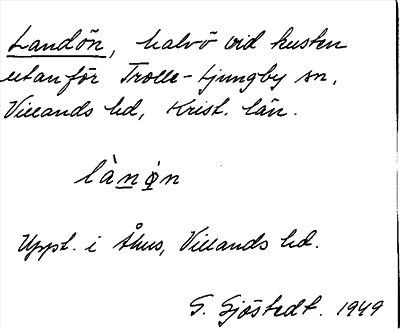 Landön, halvö vid kusten
utanför Trolle-Ljungby sn,
Villands hd, Krist. län.
là̱nø̱n
Uppt. i Åhus, Villands hd.
G. Sjöstedt. 1949